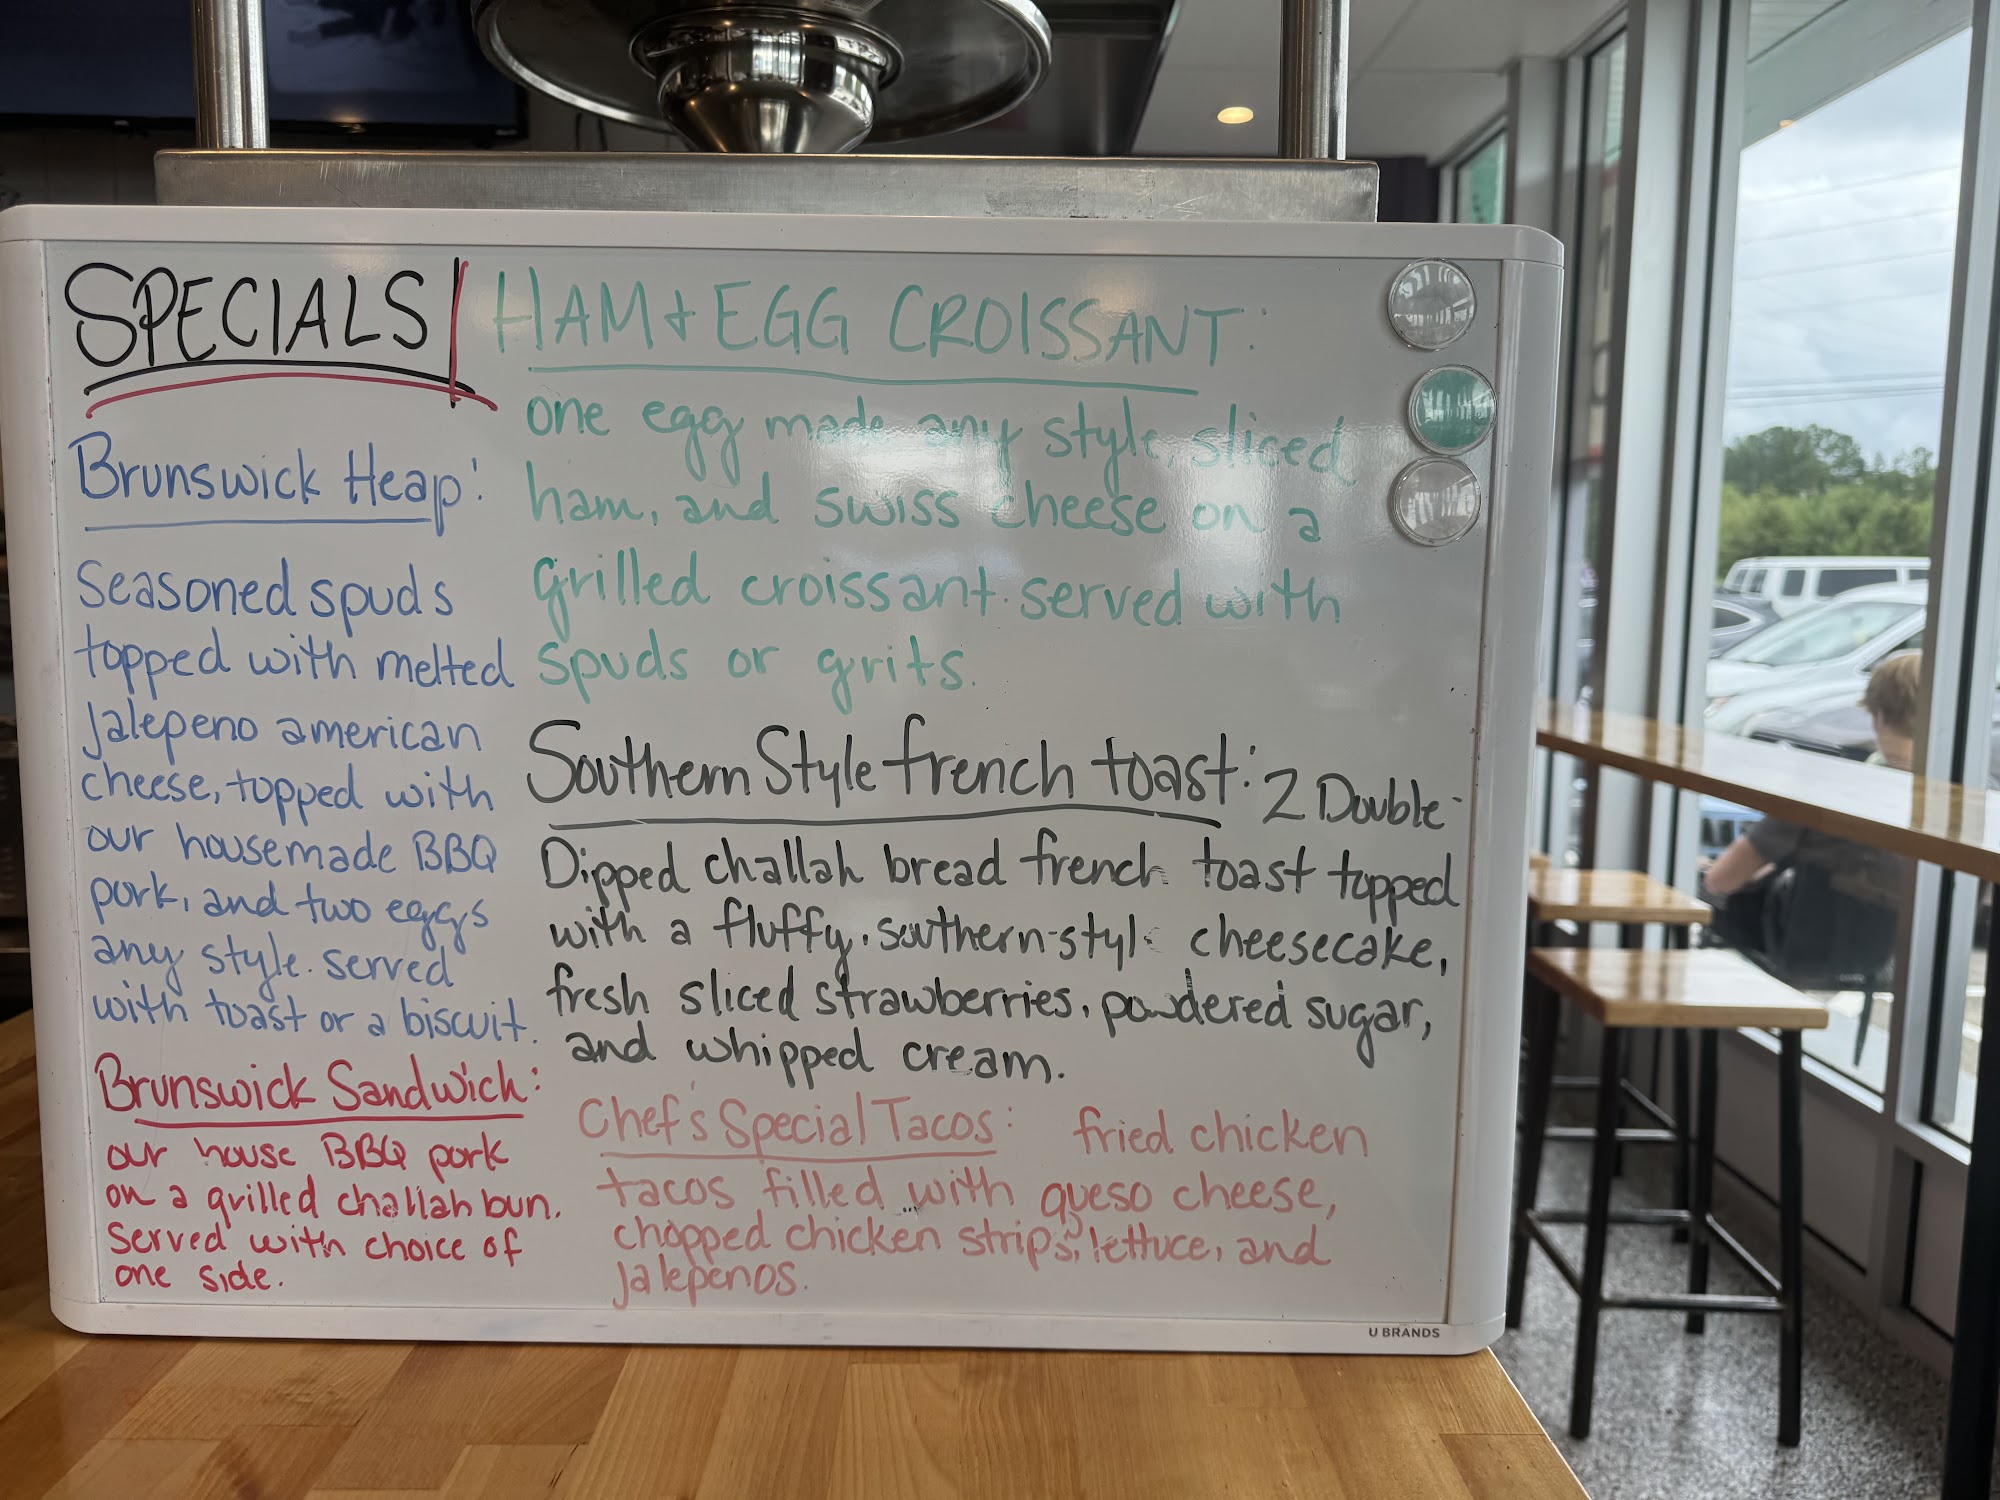 SPECIALS
Brunswick Heap:
Seasoned spuds
topped with melted
jalepeno american
cheese, topped with
our housemade BBQ
pork, and two eggs
any style. served
with toast or a biscuit.
Brunswick Sandwich:
our house BBQ pork
on a grilled challah bun.
Served with choice of
one side.
HAM + EGG CROISSANT:
one egg made any style, sliced
ham, and swiss cheese on a
grilled croissant. served with
spuds or grits.
Southern Style french toast: 2 Double-
Dipped challah bread french toast topped
with a fluffy, southern-style cheesecake,
fresh sliced strawberries, powdered sugar,
and whipped cream.
Chef's Special Tacos: fried chicken
tacos filled with queso cheese,
chopped chicken strips, lettuce, and
jalepenos.
U BRANDS